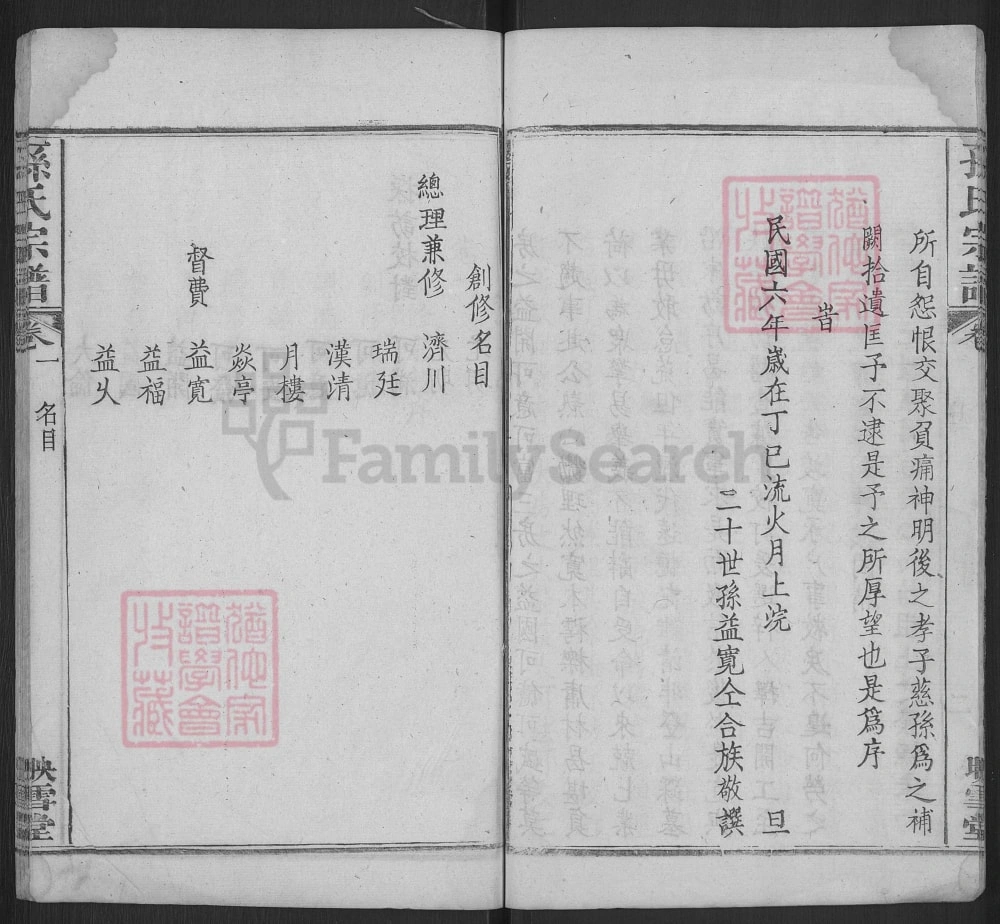 所自怨恨交聚貧痛神明後之孝子慈孫爲之補
闕拾遺匡子不逮是予之所厚望也是爲序
旹
民國六年歲在丁巳流火月上浣 旦
二十世孫益寬仝合族敬譔
孫氏宗譜 卷一 名目 映雪堂
創修名目
總理兼修 濟川
瑞廷
漢清
月樓
焱亭
督費 益寬
益福
益乆
FamilySearch